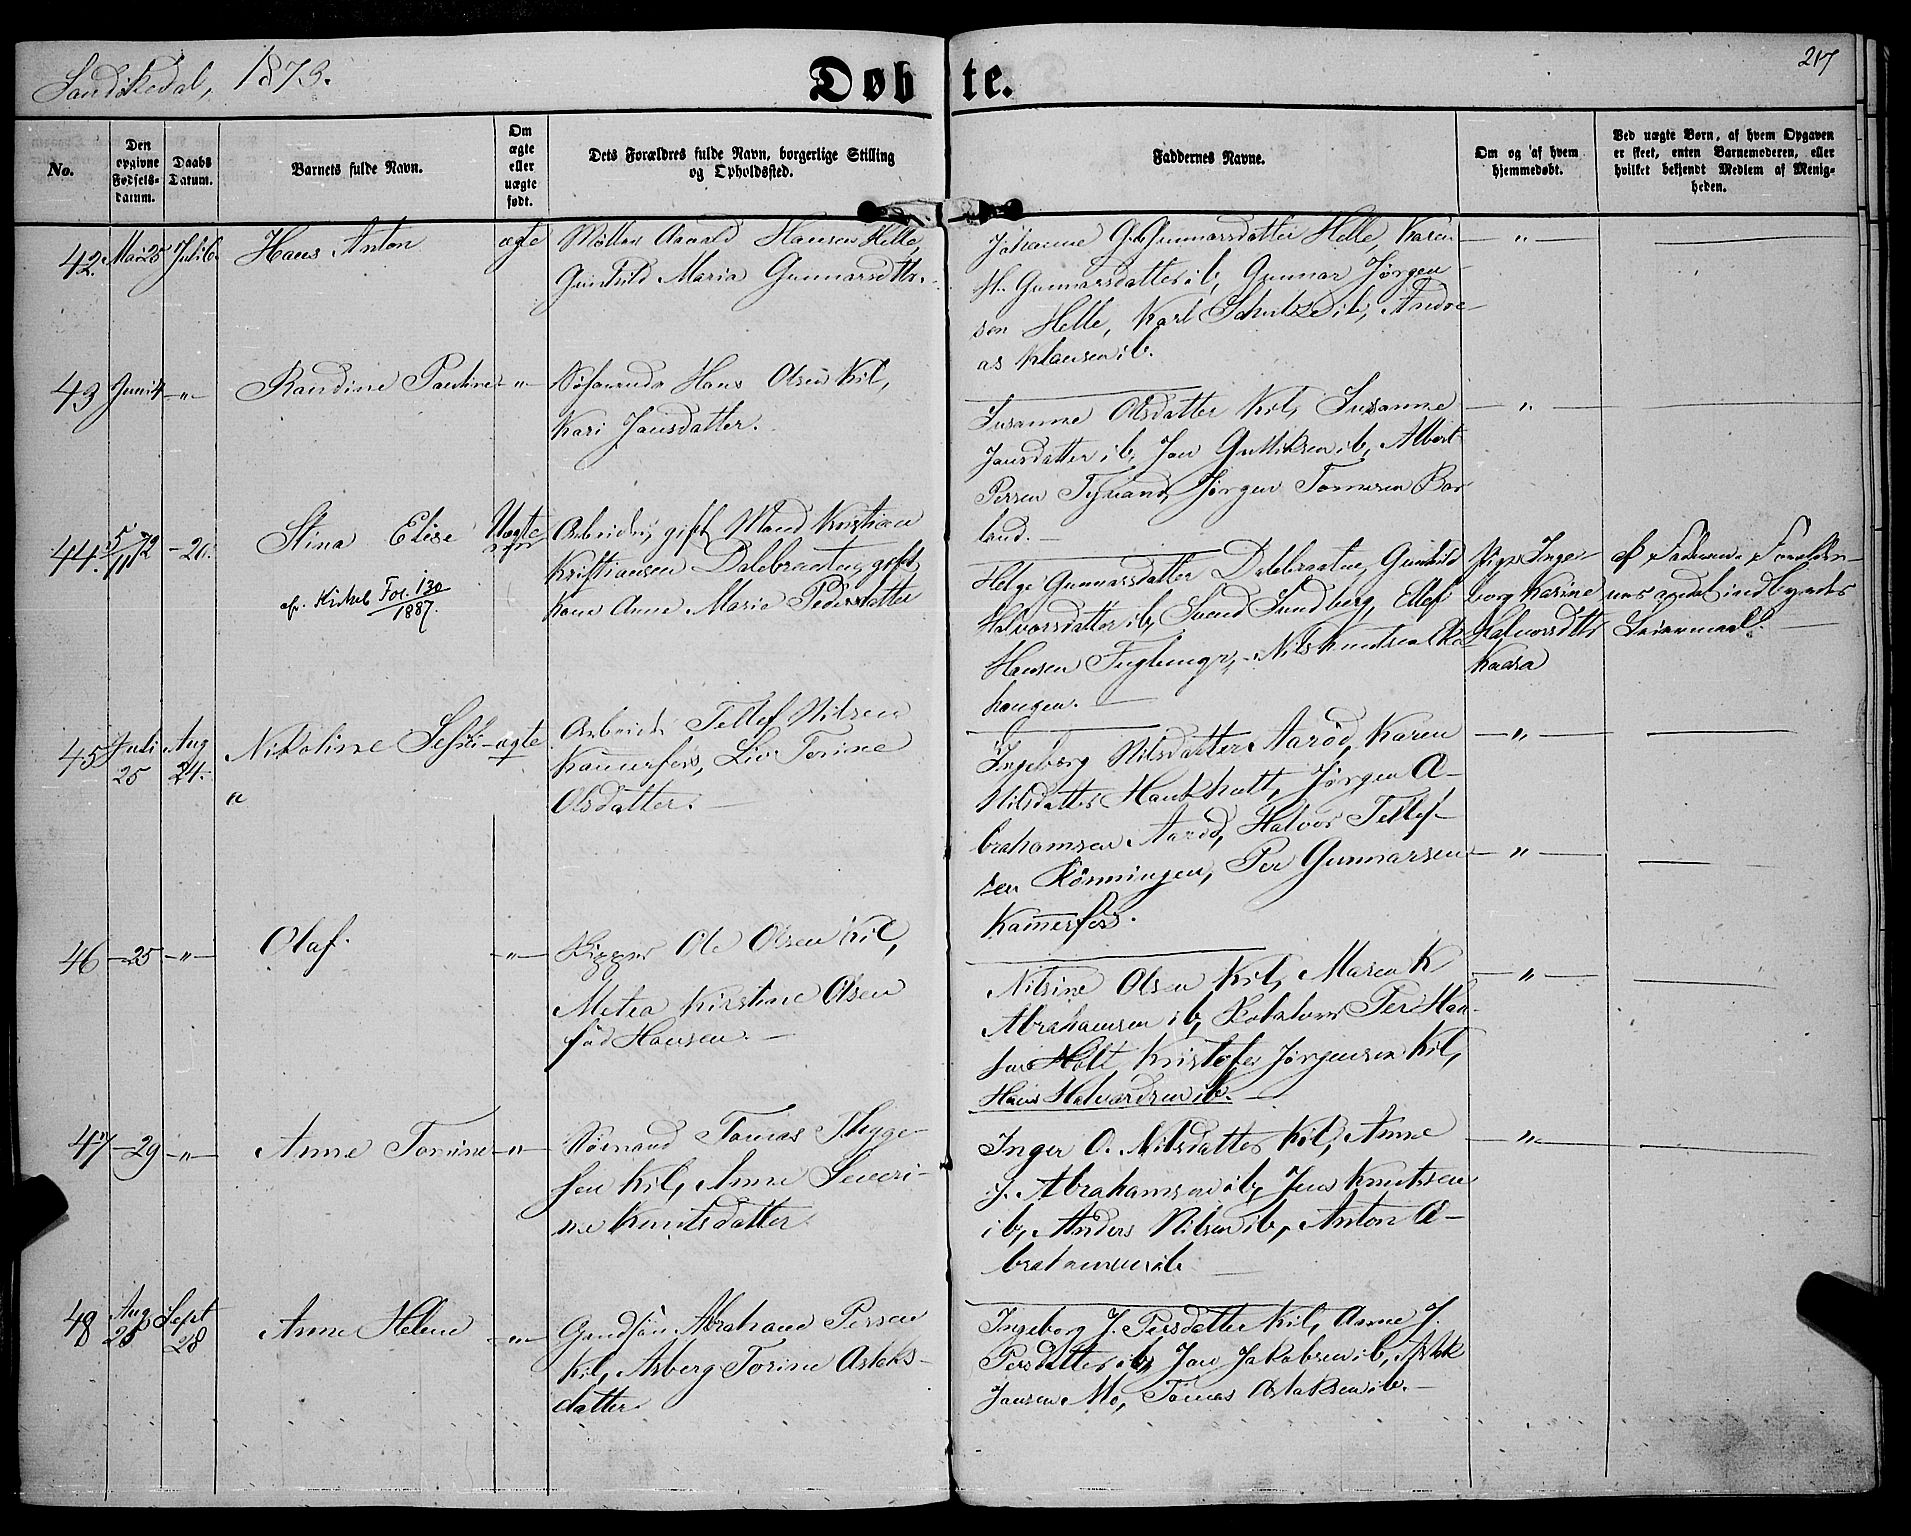 Sandøkedal, 1873.
Døbte.
217
No.
Den opgivne Fødselsdatum.
Daabs Datum.
Barnets fulde Navn.
Om ægte eller uægte født.
Dets Forældres fulde Navn, borgerlige Stilling og Opholdssted.
Faddernes Navne.
Om og af hvem hjemmedøbt.
Ved uægte Børn, af hvem Opgaven er skeet, enten Barnemoderen, eller hvilket bekjendt Medlem af Menigheden.
42. Mai 25 Juli 6. Hans Anton ægte
Hansen Helle,
Gunhild Maria Gunnarsdtr.
Johanne G. Gunnarsdatter Helle, Karen
H. Gunnarsdatter ib, Gunnar Jørgen
sen Helle, Karl Schultze ib, Andre-
as Klausen ib.
43 Juni 4 -"- Randine Pauline -"-
Hans Olsen Kil,
Kari Jansdatter.
Susanne Olsdatter Kil, Susanne
Jansdatter ib, Jan Gulliksen ib, Albert
Persen Jørgen Tomesen Bar
land.
44. 5/11 72 -20. Stina Elise Uægte
cfr. Kirkeb. Fol. 130
1887.
gift Mand Kristian
Kristiansen Dalebraaten, gift
Kone Anne Maria Pedersdatter
Helge Gunnarsdatter Dalebraaten, Gunhild
Halvorsdatter ib, Svend Sundberg, Ellef
Hansen Nils Knutsen
haugen.
Pige Inge-
borg Karine
Halvorsdtr
Kaasa
af Faderen. Forældre-
nes andet indbyrdes
Leiermaal.
45 Juli 25 Aug 24. Nikoline Sefri- ægte
a
Arbeid. Tellef Nilsen
Kammerfos, Liv Torine
Olsdatter.
Ingeborg Nilsdatter Aarød, Karen
Nilsdatter Jørgen A-
brahamsen Aarød, Halvor Tellef-
sen Rønningen, Per Gunnarsen
Kammerfos.
46 -25 -"- Olaf. -"-
Skipper Ole Olsen Kil,
Metea Kirstine Olsen
fød Hansen.
Nilsine Olsen Kil, Maren K
Abrahamsen ib, Per Han-
sen Holt, Kristofer Jørgensen Kil,
Hans Halvardsen ib.
47 -29 -"- Anne Tomine -"-
Sømand Tomas Thyge-
sen Kil, Anne Severi-
ne Knutsdatter.
Inger O. Nilsdatter Kil, Anne
J. Abrahamsen ib, Jens Knutsen
ib, Anders Nilsen ib, Anton A-
brahamsen ib
48 Aug 25 Sept 28 Anne Helene -"-
Abraham Persen
Kil, Asberg Torine Aslaks-
datter.
Ingeborg J. Persdatter Kil, Anne J.
Persdatter ib, Jan Jakobsen ib, Aslak
Jansen Mo, Tomas Aslaksen ib.